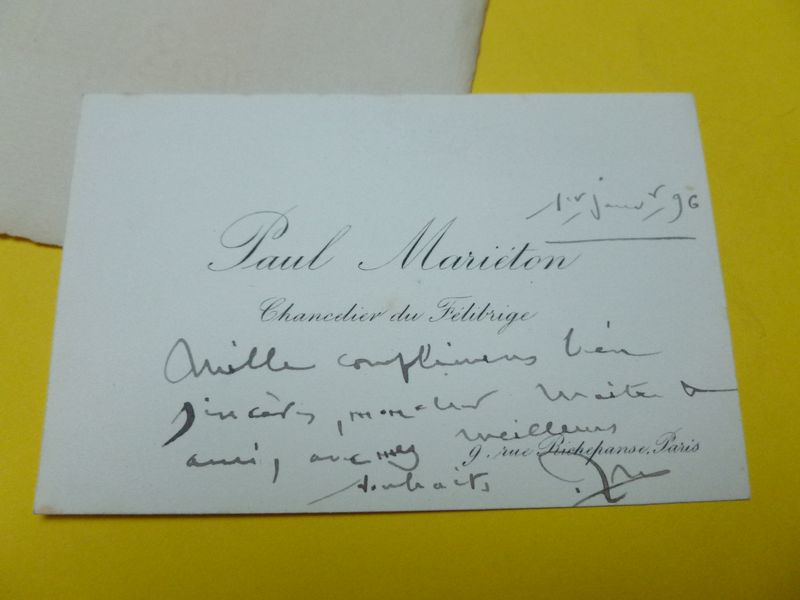 1er janvr 96
Paul Mariéton
Chancelier du Félibrige
Mille complimens bien
sincères, mon cher Maître &
ami, avec mes meilleurs
9, rue Richepanse, Paris
souhaits